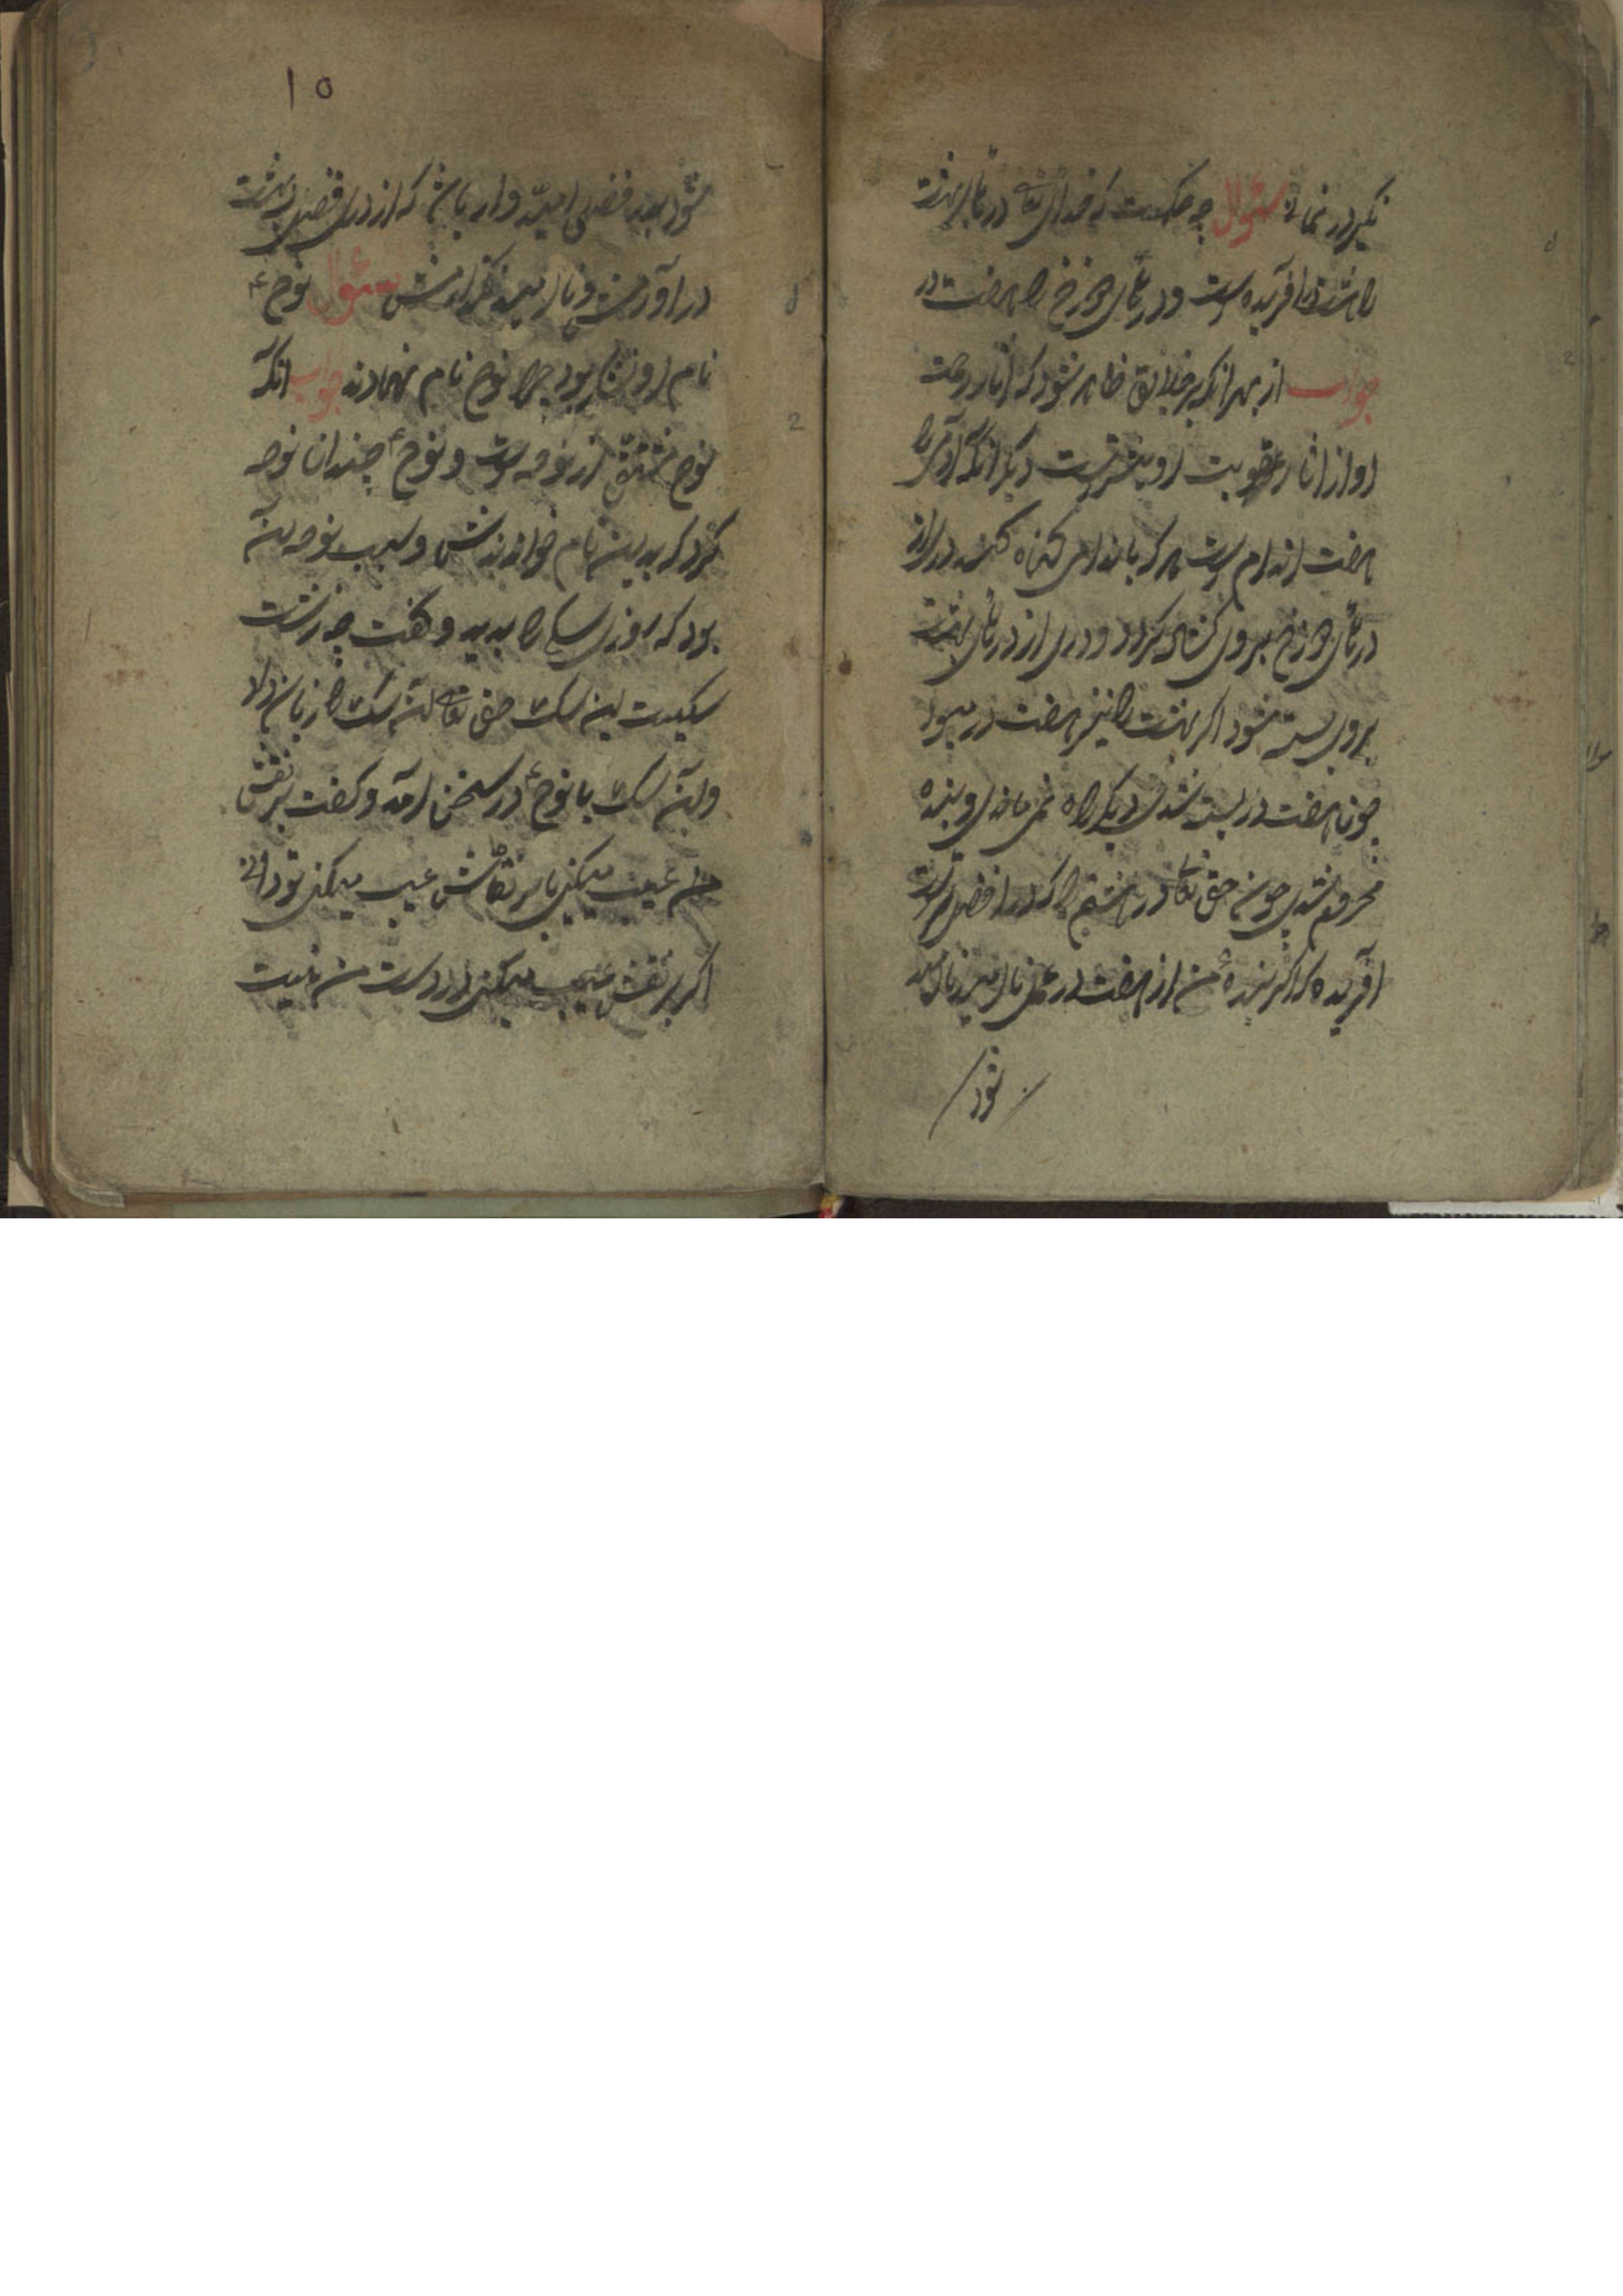 نگیر در نماز سئوال چه حکمت که خدای تعا در بهای بهشت
را هشت در آفریده است و در بهای دوزخ را هفت در
جواب از بهر انکه بر خلایق ظاهر شود که آثار رحمت
او از آثار عقوبت او بیشترست دیگر انکه آدمی را
هفت اندام است هر که باندامی کناه کند دری از
درهای دوزخ بروی کشاده کردد و دری از درهای بهشت
بروی بسته شود اکر بهشت را نیز هفت در میبود
چون هفت در بسته شدی دیکر راه نمی ماندی و بنده
محروم شدی چون حق تعا در هشتم را که در فضل است
آفریده که اکر بنده من از هفت در عمل نا امید
شود
۱۵
شود بدر فضل امیدوار باش که از در فضل ببهشت
در آورمش و نا امید نکذارمش سئوال نوح ع
نام او بود چرا نوح نام نهادند جواب انکه
نوح مشتق از نوحه است و نوح ع چندان نوحه
کرد که بدین نام خواندندش و سبب نوحه آن
بود که روزی سکی را بدید و کفت چه زشت
سکیست این سک حق تعا آن سک را زبان داد
و آن سک با نوح ع در سخن آمد و کفت بر نقش
من عیب میکنی یا بر نقاش عیب میکنی تو دانی
اکر بر نقش عیب میکنی در دست من نیست